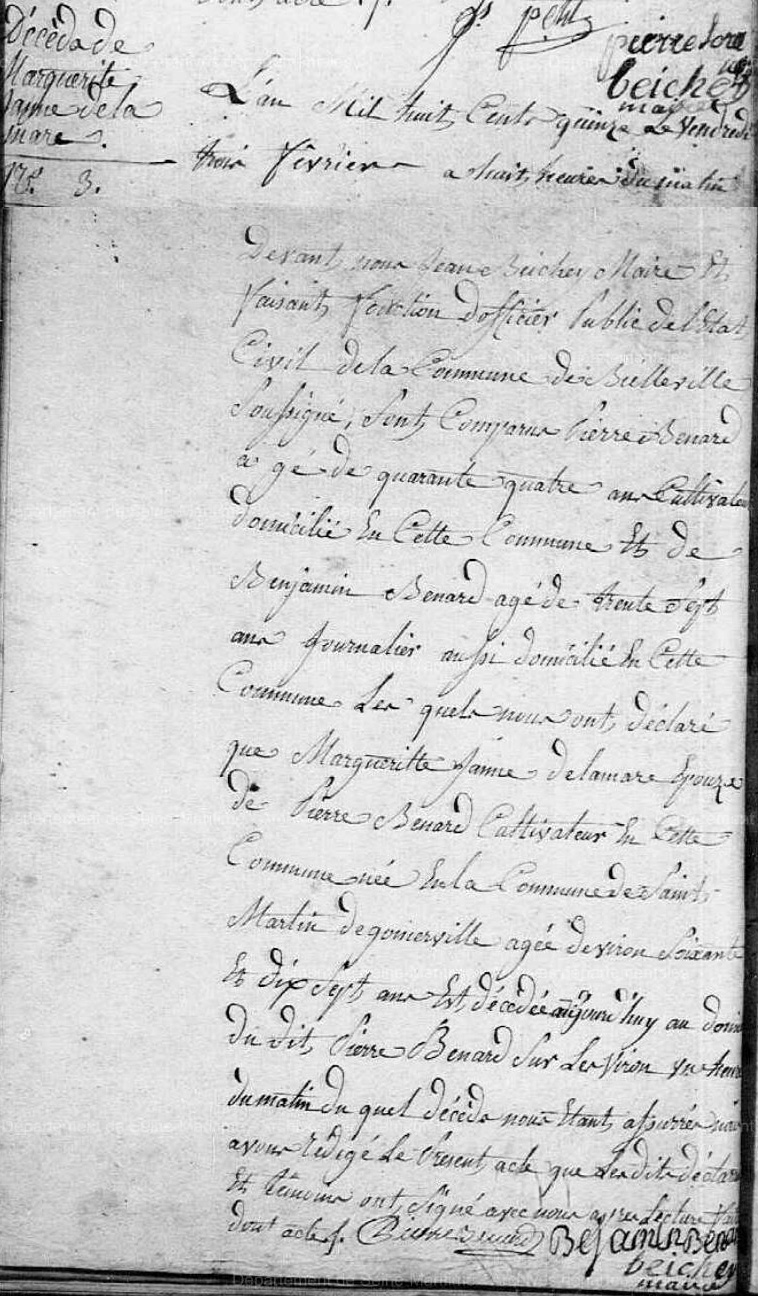 Décéda de
Marguerite
Janne de la
mare.
Nº. 3.
js petit
pierre
beicher
maire
L'an Mil huit Cents quinze Le Vendredi
trois fevrier a huit heures du matin
Devant nous Jean Beicher Maire Et
faisant fonction d'officier Public de l'Etat
Civil de la Commune de Bielleville
Soussigné, Sont Comparus Pierre Benard
agé de quarante quatre ans Cultivateu
domicilié En Cette Commune Et de
Benjamin Benard agé de trente Sept
ans Journalier aussi domicilié En Cette
Commune Les quels nous ont déclaré
que Margueritte Janne delamare Epouze
de Pierre Benard Cultivateur En Cette
Commune née En la Commune de Saint
Martin de gomerville agée deviron Soixante
Et dix Sept ans Est décédée aujourd'huy au domi
du dit Pierre Benard Sur Les Viron une heure
du matin du quel décéds nous Etant assurrés nous
avons rédigé Le Present acte que Les dits déclara
Et témoins ont Signé avec nous apres Lecture
dont acte. Pierre Benard Bejamin Ben
beicher
maire